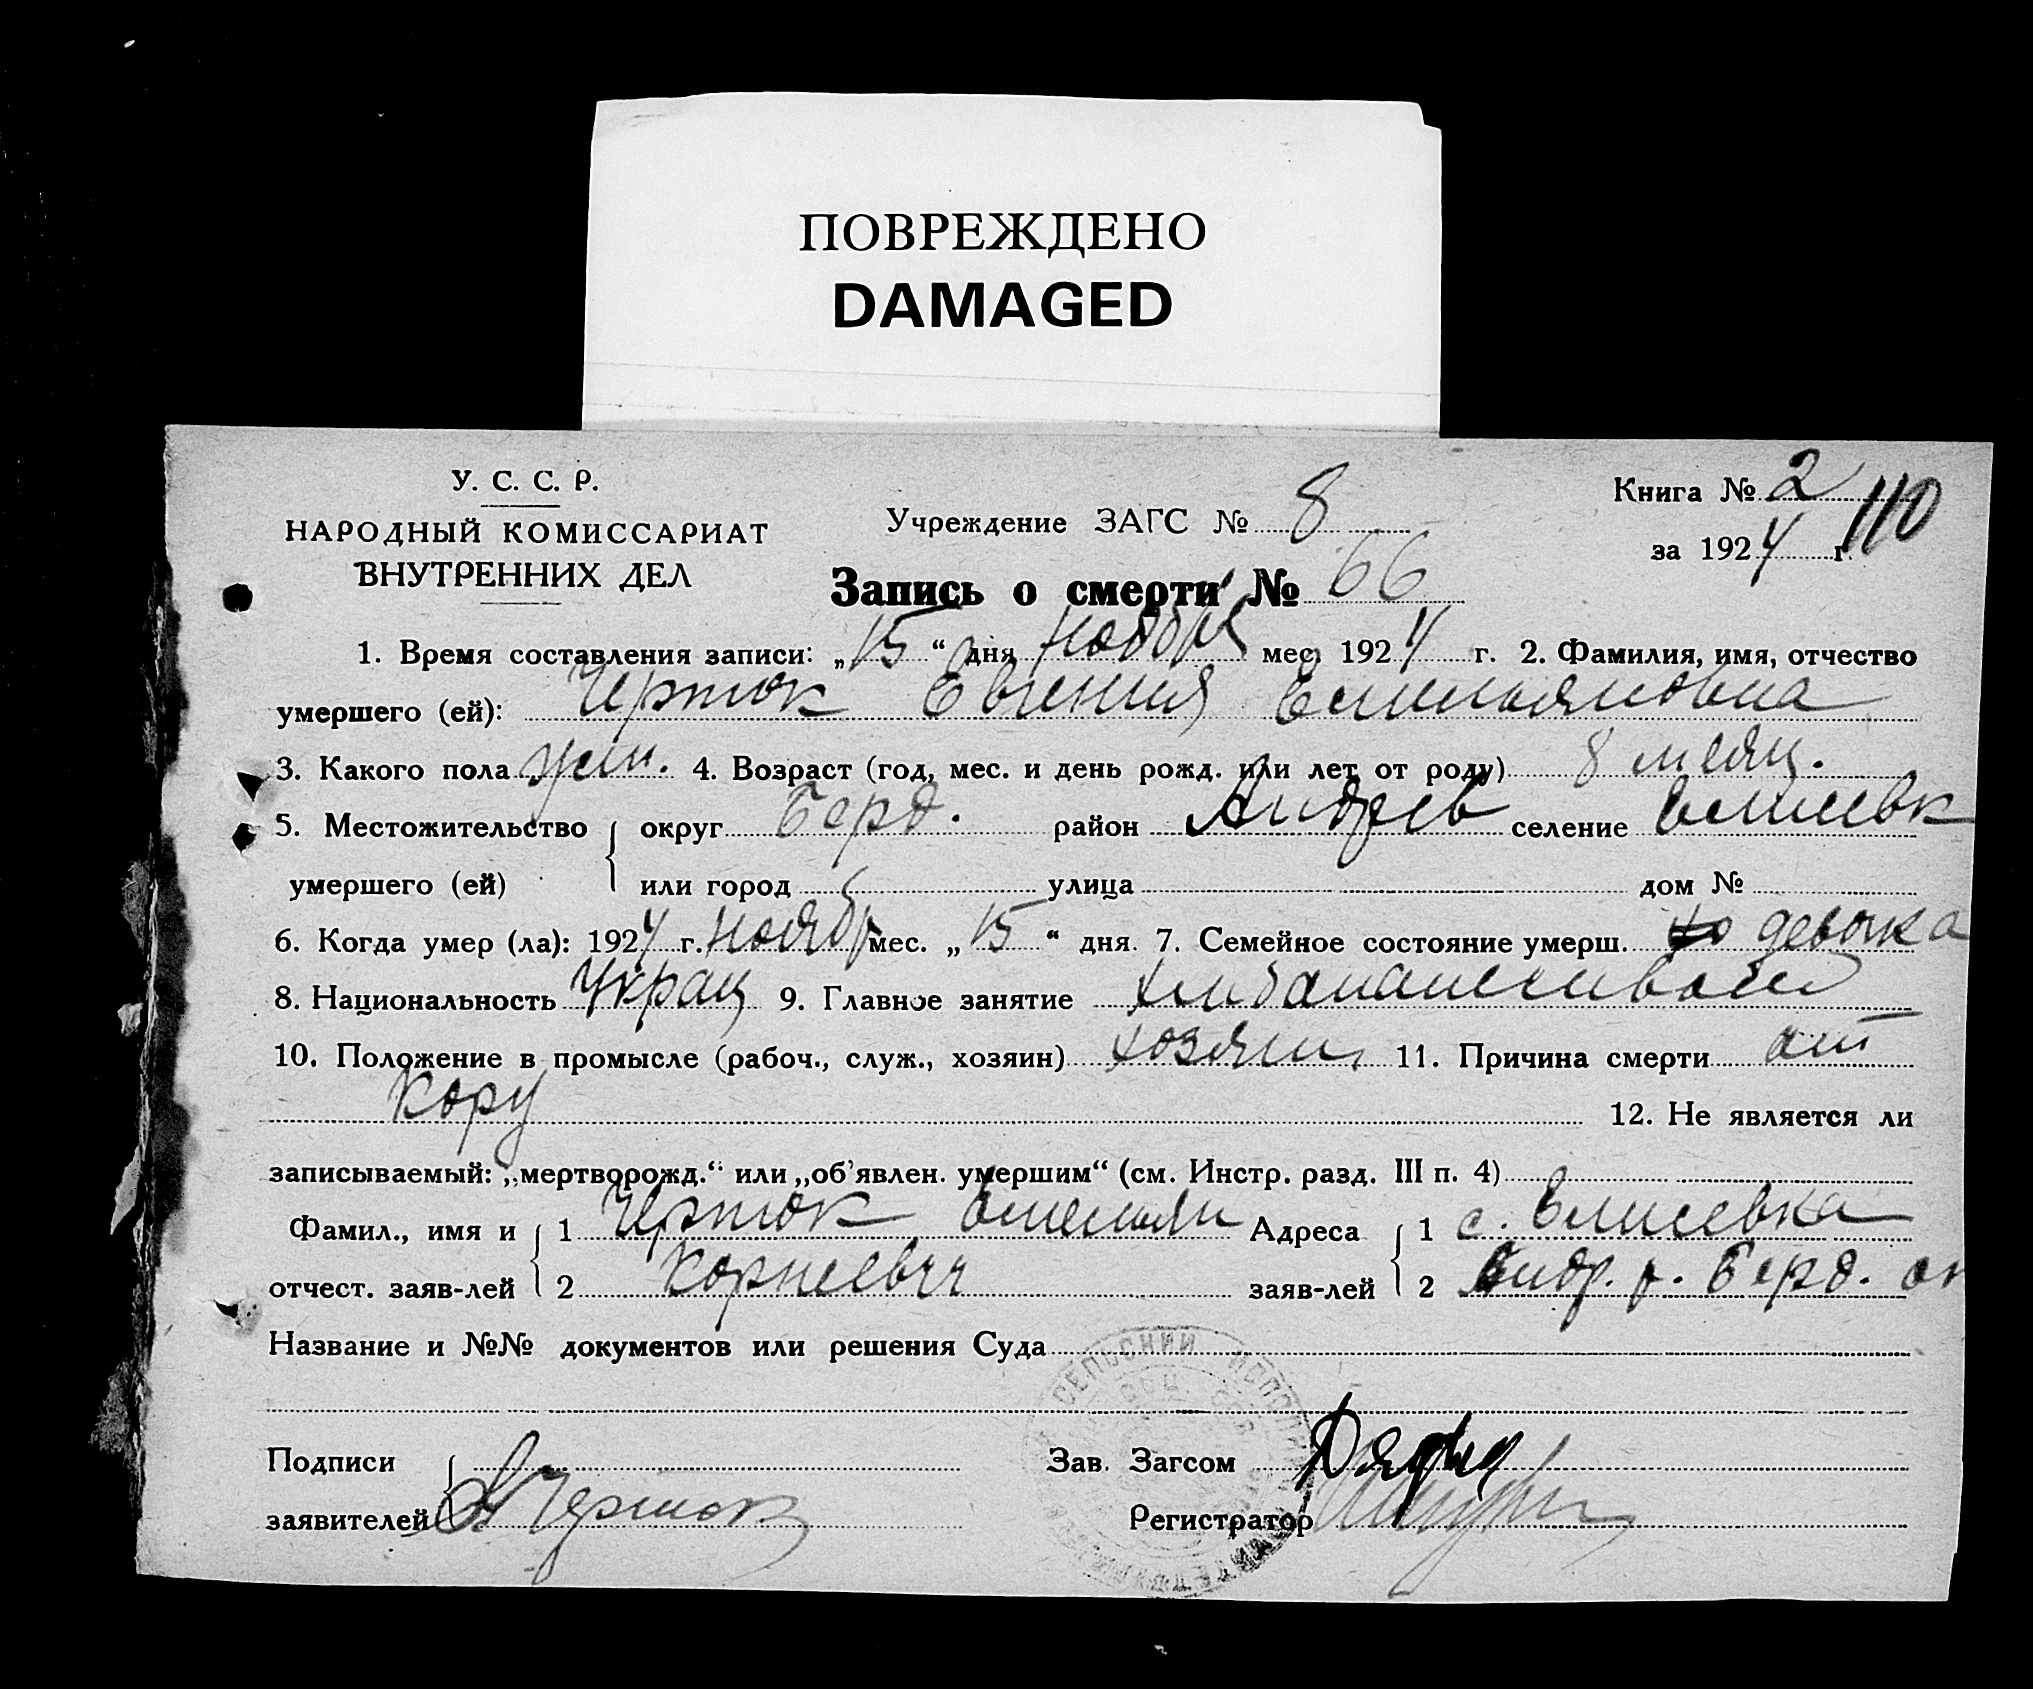 ПОВРЕЖДЕНО
DAMAGED
У. С. С. Р.
НАРОДНЫЙ КОМИССАРИАТ
ВНУТРЕННИХ ДЕЛ
Учреждение ЗАГС № 8
Книга № 2 110
за 1924 г.
Запись о смерти № 66
1. Время составления записи: „15“ дня Ноября мес. 1924 г. 2. Фамилия, имя, отчество
умершего (ей): Черток Евгения Емельяновна
3. Какого пола жен. 4. Возраст (год, мес. и день рожд. или лет от роду) 8 месяц.
5. Местожительство округ Берд. район Андреев селение Елисевк
умершего (ей) или город улица дом №
6. Когда умер (ла): 1924 г. Ноябр мес. „15“ дня. 7. Семейное состояние умерш. девочка
8. Национальность Украц 9. Главное занятие
10. Положение в промысле (рабоч., служ., хозяин) хозяин 11. Причина смерти от
кору 12. Не является ли
записываемый: „мертворожд.“ или „об'явлен. умершим“ (см. Инстр. разд. III п. 4)
Фамил., имя и 1 Черток Емельян Адреса 1 с. Елисевка
отчест. заяв-лей 2 Корнеевич заяв-лей 2 Андр. р. Берд. ок
Название и №№ документов или решения Суда
СЕЛЬСКИЙ
Подписи Зав. Загсом
заявителей Черток Регистратор